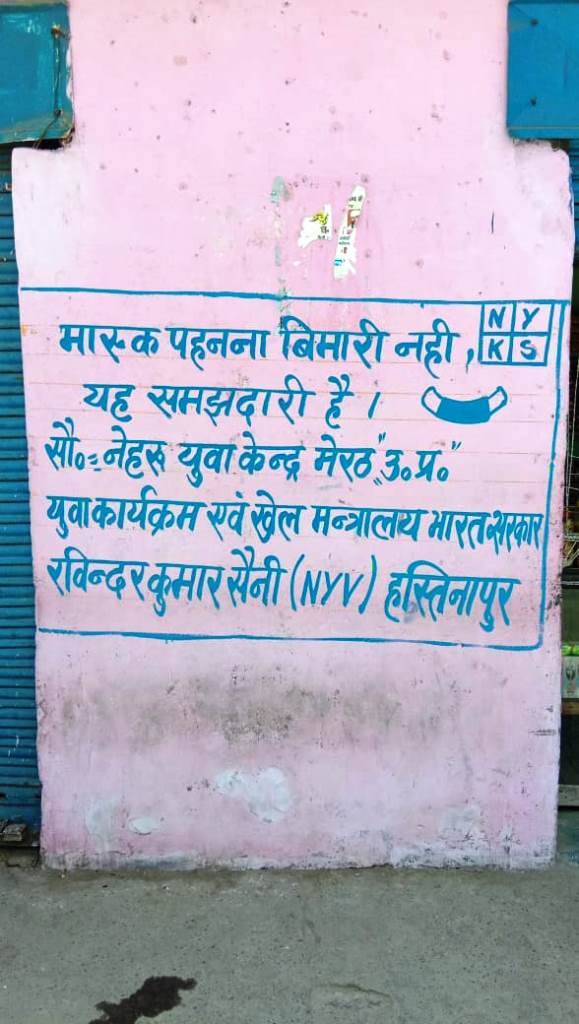 N Y
K S
मास्क पहनना बिमारी नही,
यह समझदारी है।
सौ॰ः नेहरू युवा केन्द्र मेरठ "उ॰प्र॰"
युवा कार्यक्रम एवं खेल मन्त्रालय भारत सरकार
रविन्दर कुमार सैनी (NYV) हस्तिनापुर